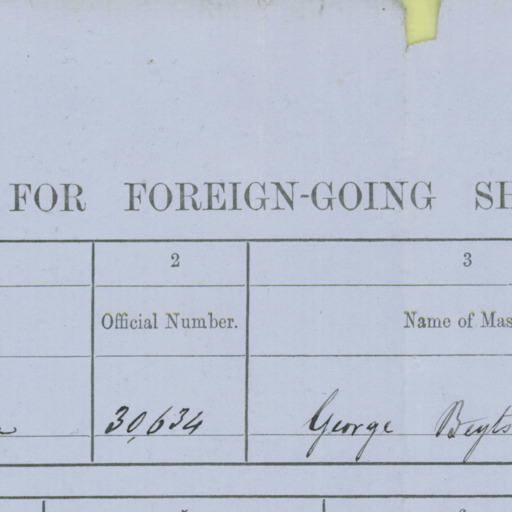 FOR FOREIGN-GOING
2 3
Official Number. Name of Mas
30,634 George Beyts